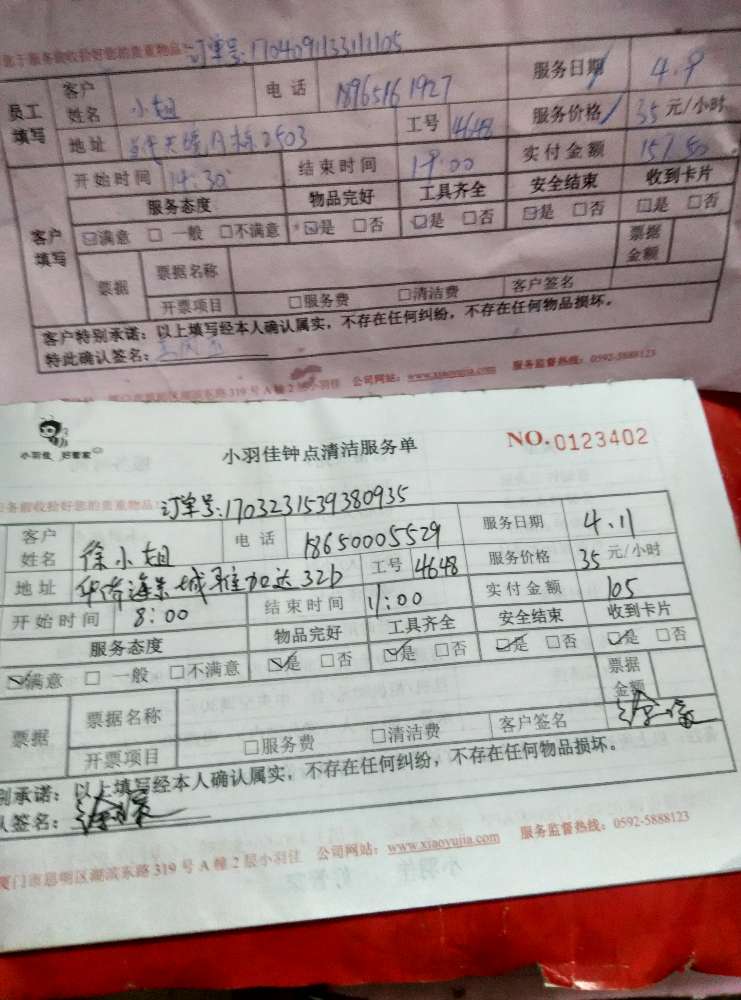 于服务前收拾好您的贵重物品 订单号:1704091133111105
员工填写 客户姓名 小姐 电话 18965161927 服务日期 4.9
地址 2503 工号 4648 服务价格 35元/小时
开始时间 14:30 结束时间 19:00 实付金额 157.50
服务态度 物品完好 工具齐全 安全结束 收到卡片
客户填写 ☑满意 □一般 □不满意 ☑是 □否 ☑是 □否 ☑是 □否 ☑是 □否
票据 票据名称 票据金额
开票项目 □服务费 □清洁费 客户签名
客户特别承诺:以上填写经本人确认属实,不存在任何纠纷,不存在任何物品损坏。
特此确认签名:
厦门市思明区湖滨东路319号A幢2层小羽佳 公司网站:www.xiaoyujia.com 服务监督热线:0592-5888123
小羽佳 好管家 小羽佳钟点清洁服务单 NO.0123402
务前收拾好您的贵重物品 订单号:1703231539380935
客户姓名 徐小姐 电话 18650005529 服务日期 4.11
地址 华侨海景城雅加达32b 工号 4648 服务价格 35元/小时
开始时间 8:00 结束时间 11:00 实付金额 105
服务态度 物品完好 工具齐全 安全结束 收到卡片
☑满意 □一般 □不满意 ☑是 □否 ☑是 □否 ☑是 □否 ☑是 □否
票据 票据名称 票据金额
开票项目 □服务费 □清洁费 客户签名
别承诺:以上填写经本人确认属实,不存在任何纠纷,不存在任何物品损坏。
认签名:
厦门市思明区湖滨东路319号A幢2层小羽佳 公司网站:www.xiaoyujia.com 服务监督热线:0592-5888123